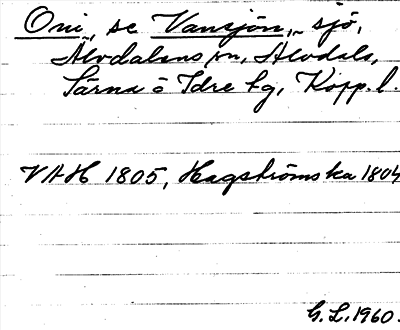 Oni, se Vansjön, sjö,
Älvdalens sn, Älvdals,
Särna o Idre tg, Kopp. l.
VAH 1805, Hagströms ka 1804
G. L. 1960.